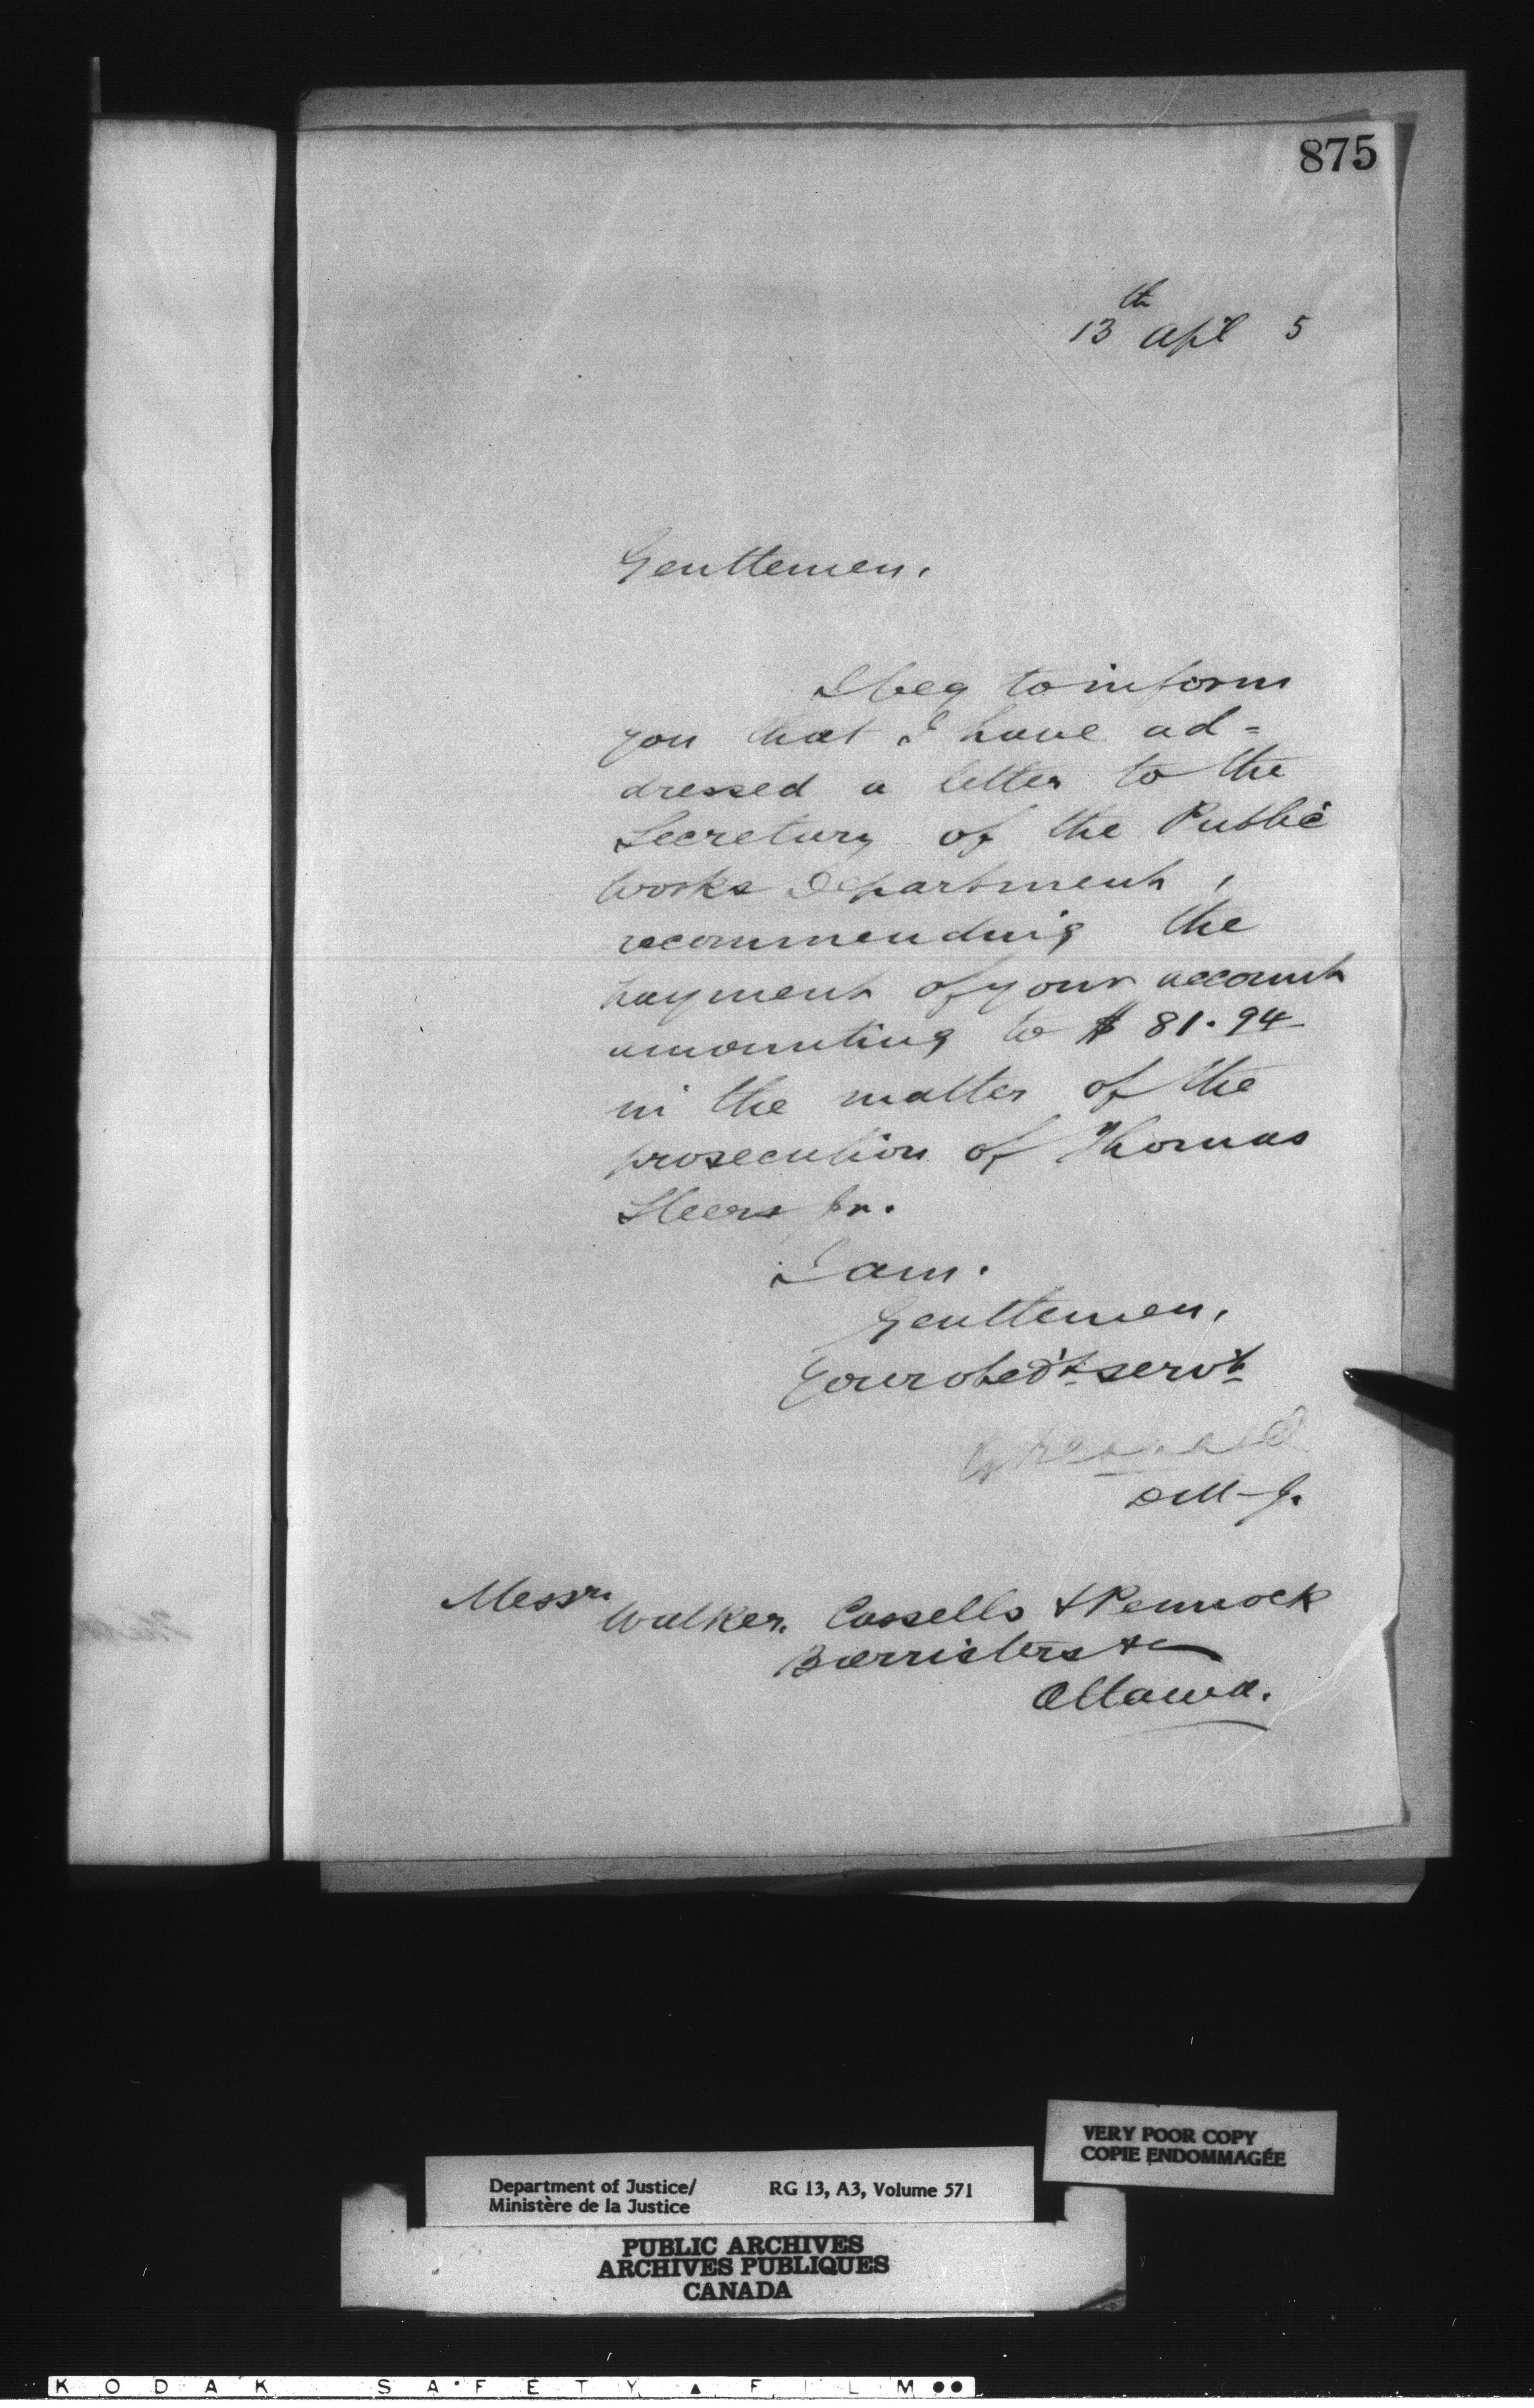 875
13th Apl 5
Gentlemen,
I beg to inform
you that I have ad=
dressed a letter to the
Secretary of the Public
Works Department,
recommending the
payment of your account
amounting to $ 81.94
in the matter of the
prosecution of Thomas
Jr.
I am.
Gentlemen,
Your obed't serv't
D M J.
Messrs
Walker, Cassells & Pennock
Barristers &c
Ottawa.
VERY POOR COPY
COPIE ENDOMMAGÉE
Department of Justice/ RG 13, A3, Volume 571
Ministère de la Justice
PUBLIC ARCHIVES
ARCHIVES PUBLIQUES
CANADA
KODAK SAFETY ▲ FILM ●●